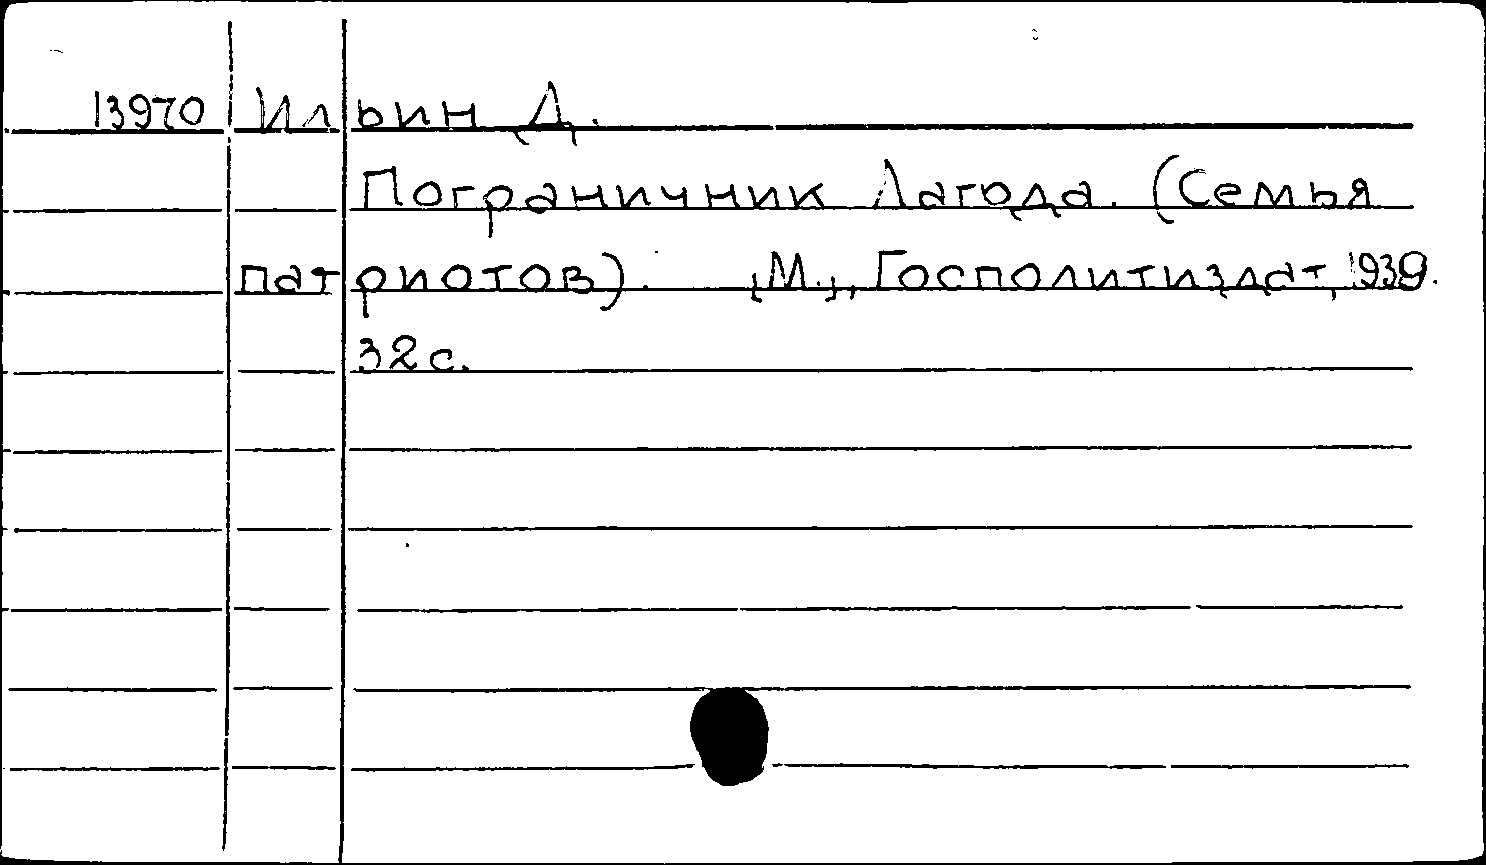 13970 Ильин Д.
Пограничник Лагода. (Семья
патриотов). [М.], Госполитиздат, 1939.
32 с.